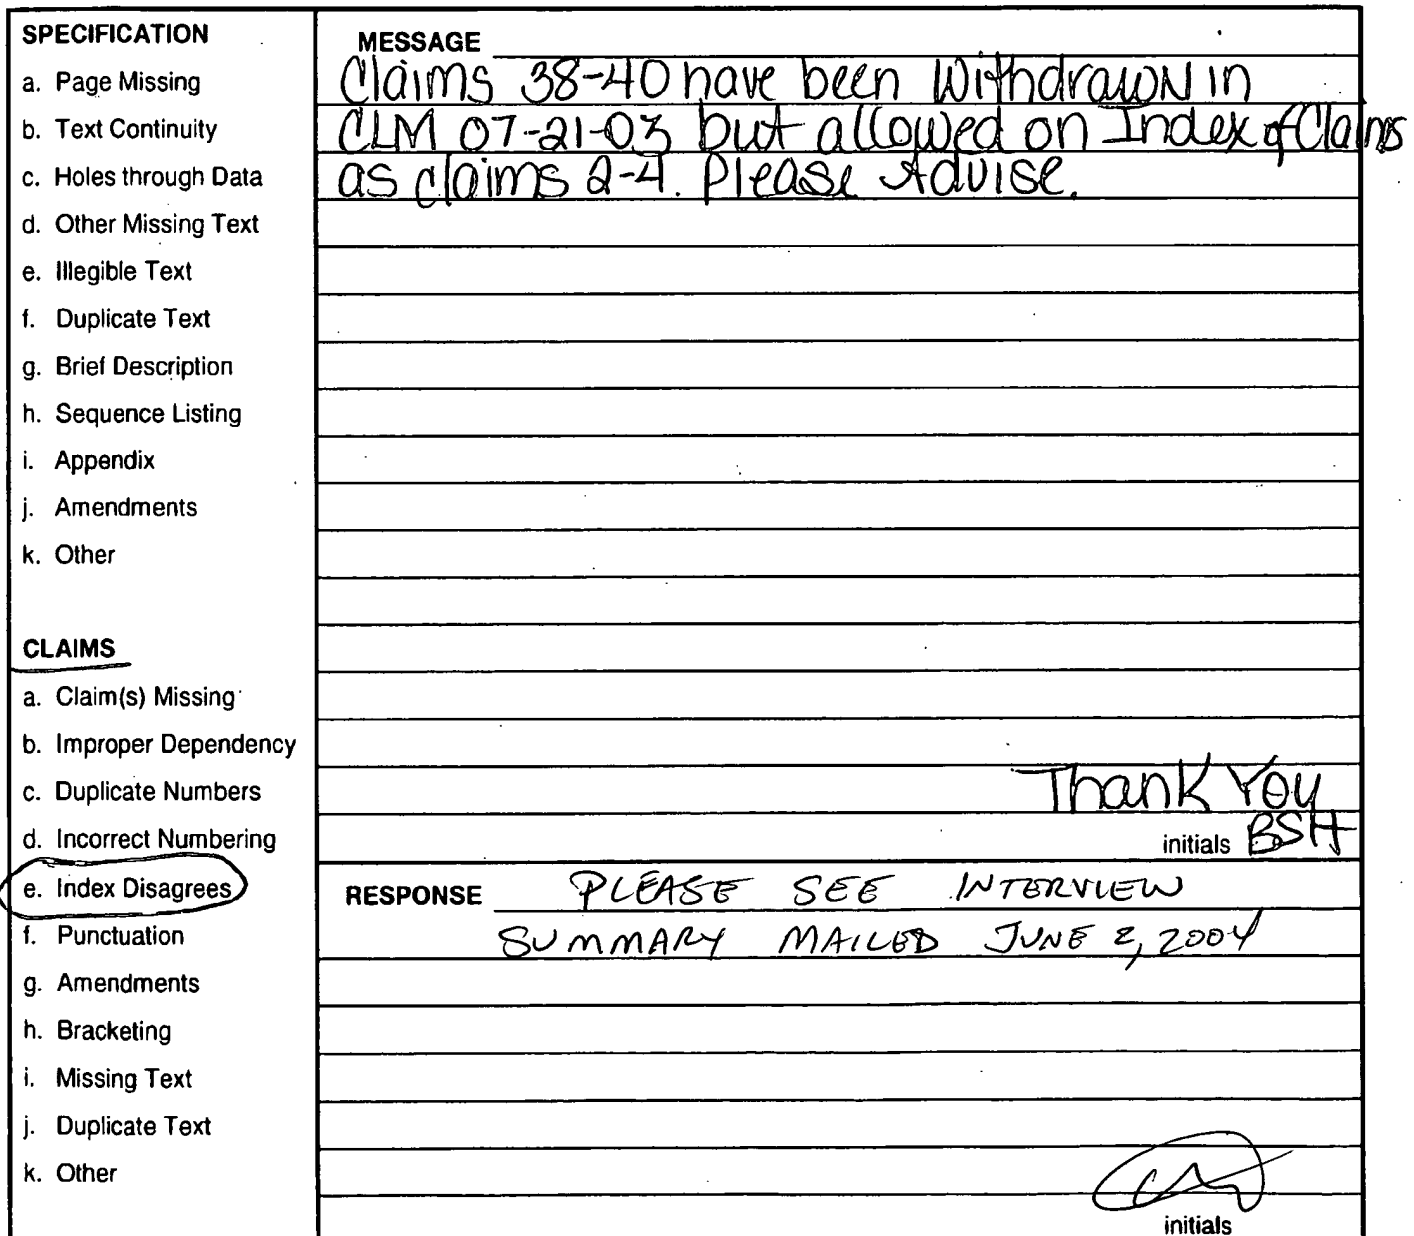 SPECIFICATION
a. Page Missing
b. Text Continuity
c. Holes through Data
d. Other Missing Text
e. Illegible Text
f. Duplicate Text
g. Brief Description
h. Sequence Listing
i. Appendix
j. Amendments
k. Other
CLAIMS
a. Claim(s) Missing
b. Improper Dependency
c. Duplicate Numbers
d. Incorrect Numbering
e. Index Disagrees
f. Punctuation
g. Amendments
h. Bracketing
i. Missing Text
j. Duplicate Text
k. Other
MESSAGE
Claims 38-40 have been Withdrawn in
CLM 07-21-03 but allowed on Index of Claims
as claims 2-4. Please Advise.
Thank You
initials BSH
RESPONSE PLEASE SEE INTERVIEW
SUMMARY MAILED JUNE 2, 2004
initials